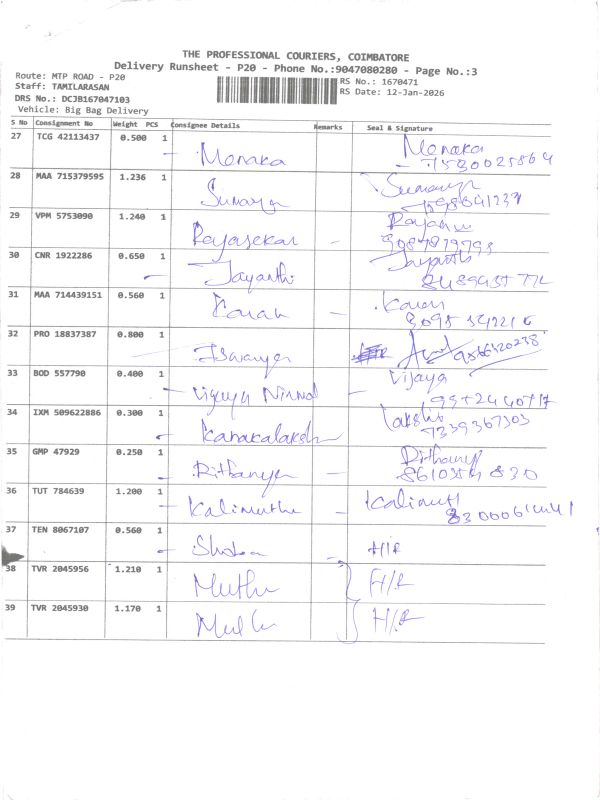 THE PROFESSIONAL COURIERS, COIMBATORE
Delivery Runsheet - P20 - Phone No.:9047080280 - Page No.:3
Route: MTP ROAD - P20
RS No.: 1670471
Staff: TAMILARASAN
RS Date: 12-Jan-2026
DRS No.: DCJB167047103
Vehicle: Big Bag Delivery
S No Consignment No Weight PCS Consignee Details Remarks Seal & Signature
27 TCG 42113437 0.500 1 Monaka Monaka
28 MAA 715379595 1.236 1
29 VPM 5753090 1.240 1 Rajasekar
30 CNR 1922286 0.650 1 Jayanthi
31 MAA 714439151 0.560 1 Karan Karan
32 PRO 18837387 0.800 1
9566420238
33 BOD 557790 0.400 1 Vijaya Nirmal Vijaya
34 IXM 509622886 0.300 1
7339367303
35 GMP 47929 0.250 1 Rithanya
36 TUT 784639 1.200 1 Kalimuthu
37 TEN 8067107 0.560 1 H/R
38 TVR 2045956 1.210 1 Muthu H/R
39 TVR 2045930 1.170 1 H/R